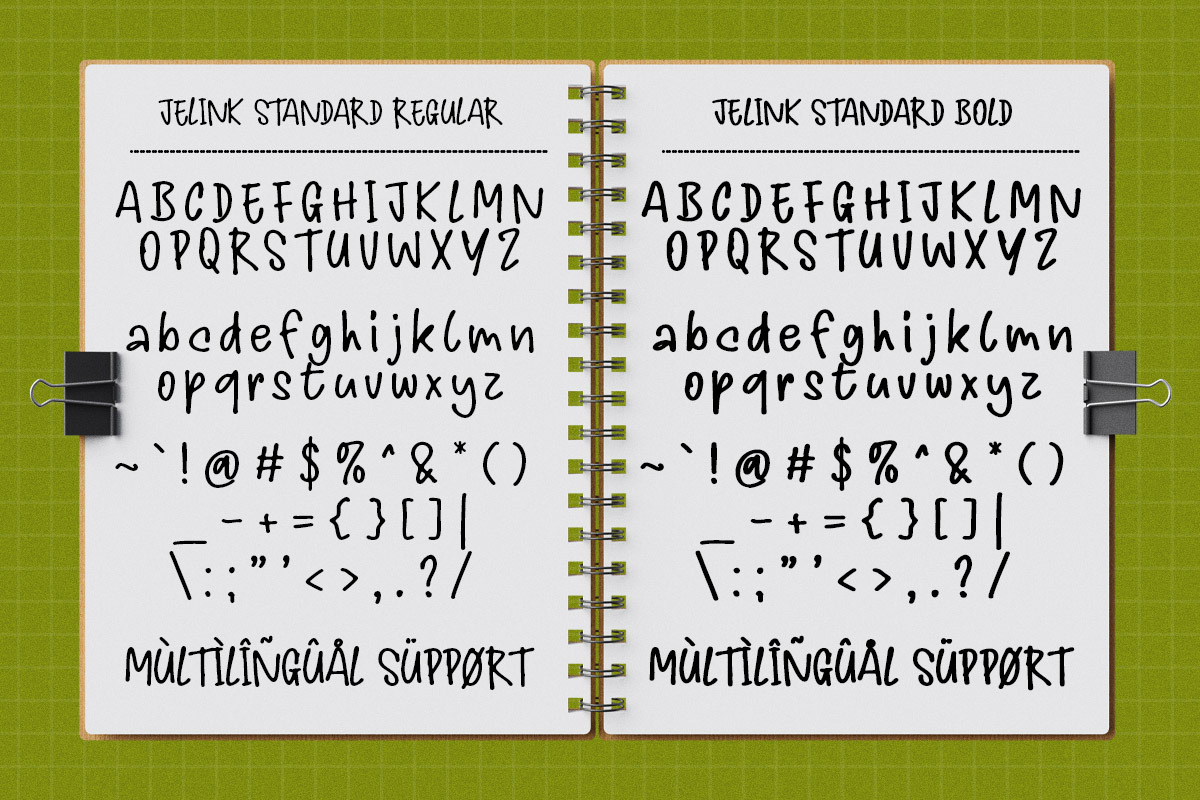 JELINK STANDARD REGULAR
ABCDEFGHIJKLMN
OPQRSTUVWXYZ
abcdefghijklmn
opqrstuvwxyz
~`!@#$%^&*()
_-+={}[]|
\:;”’<>,.?/
MÙLTÌLÎÑGÛÅL SÜPPØRT
JELINK STANDARD BOLD
ABCDEFGHIJKLMN
OPQRSTUVWXYZ
abcdefghijklmn
opqrstuvwxyz
~`!@#$%^&*()
_-+={}[]|
\:;”’<>,.?/
MÙLTÌLÎÑGÛÅL SÜPPØRT